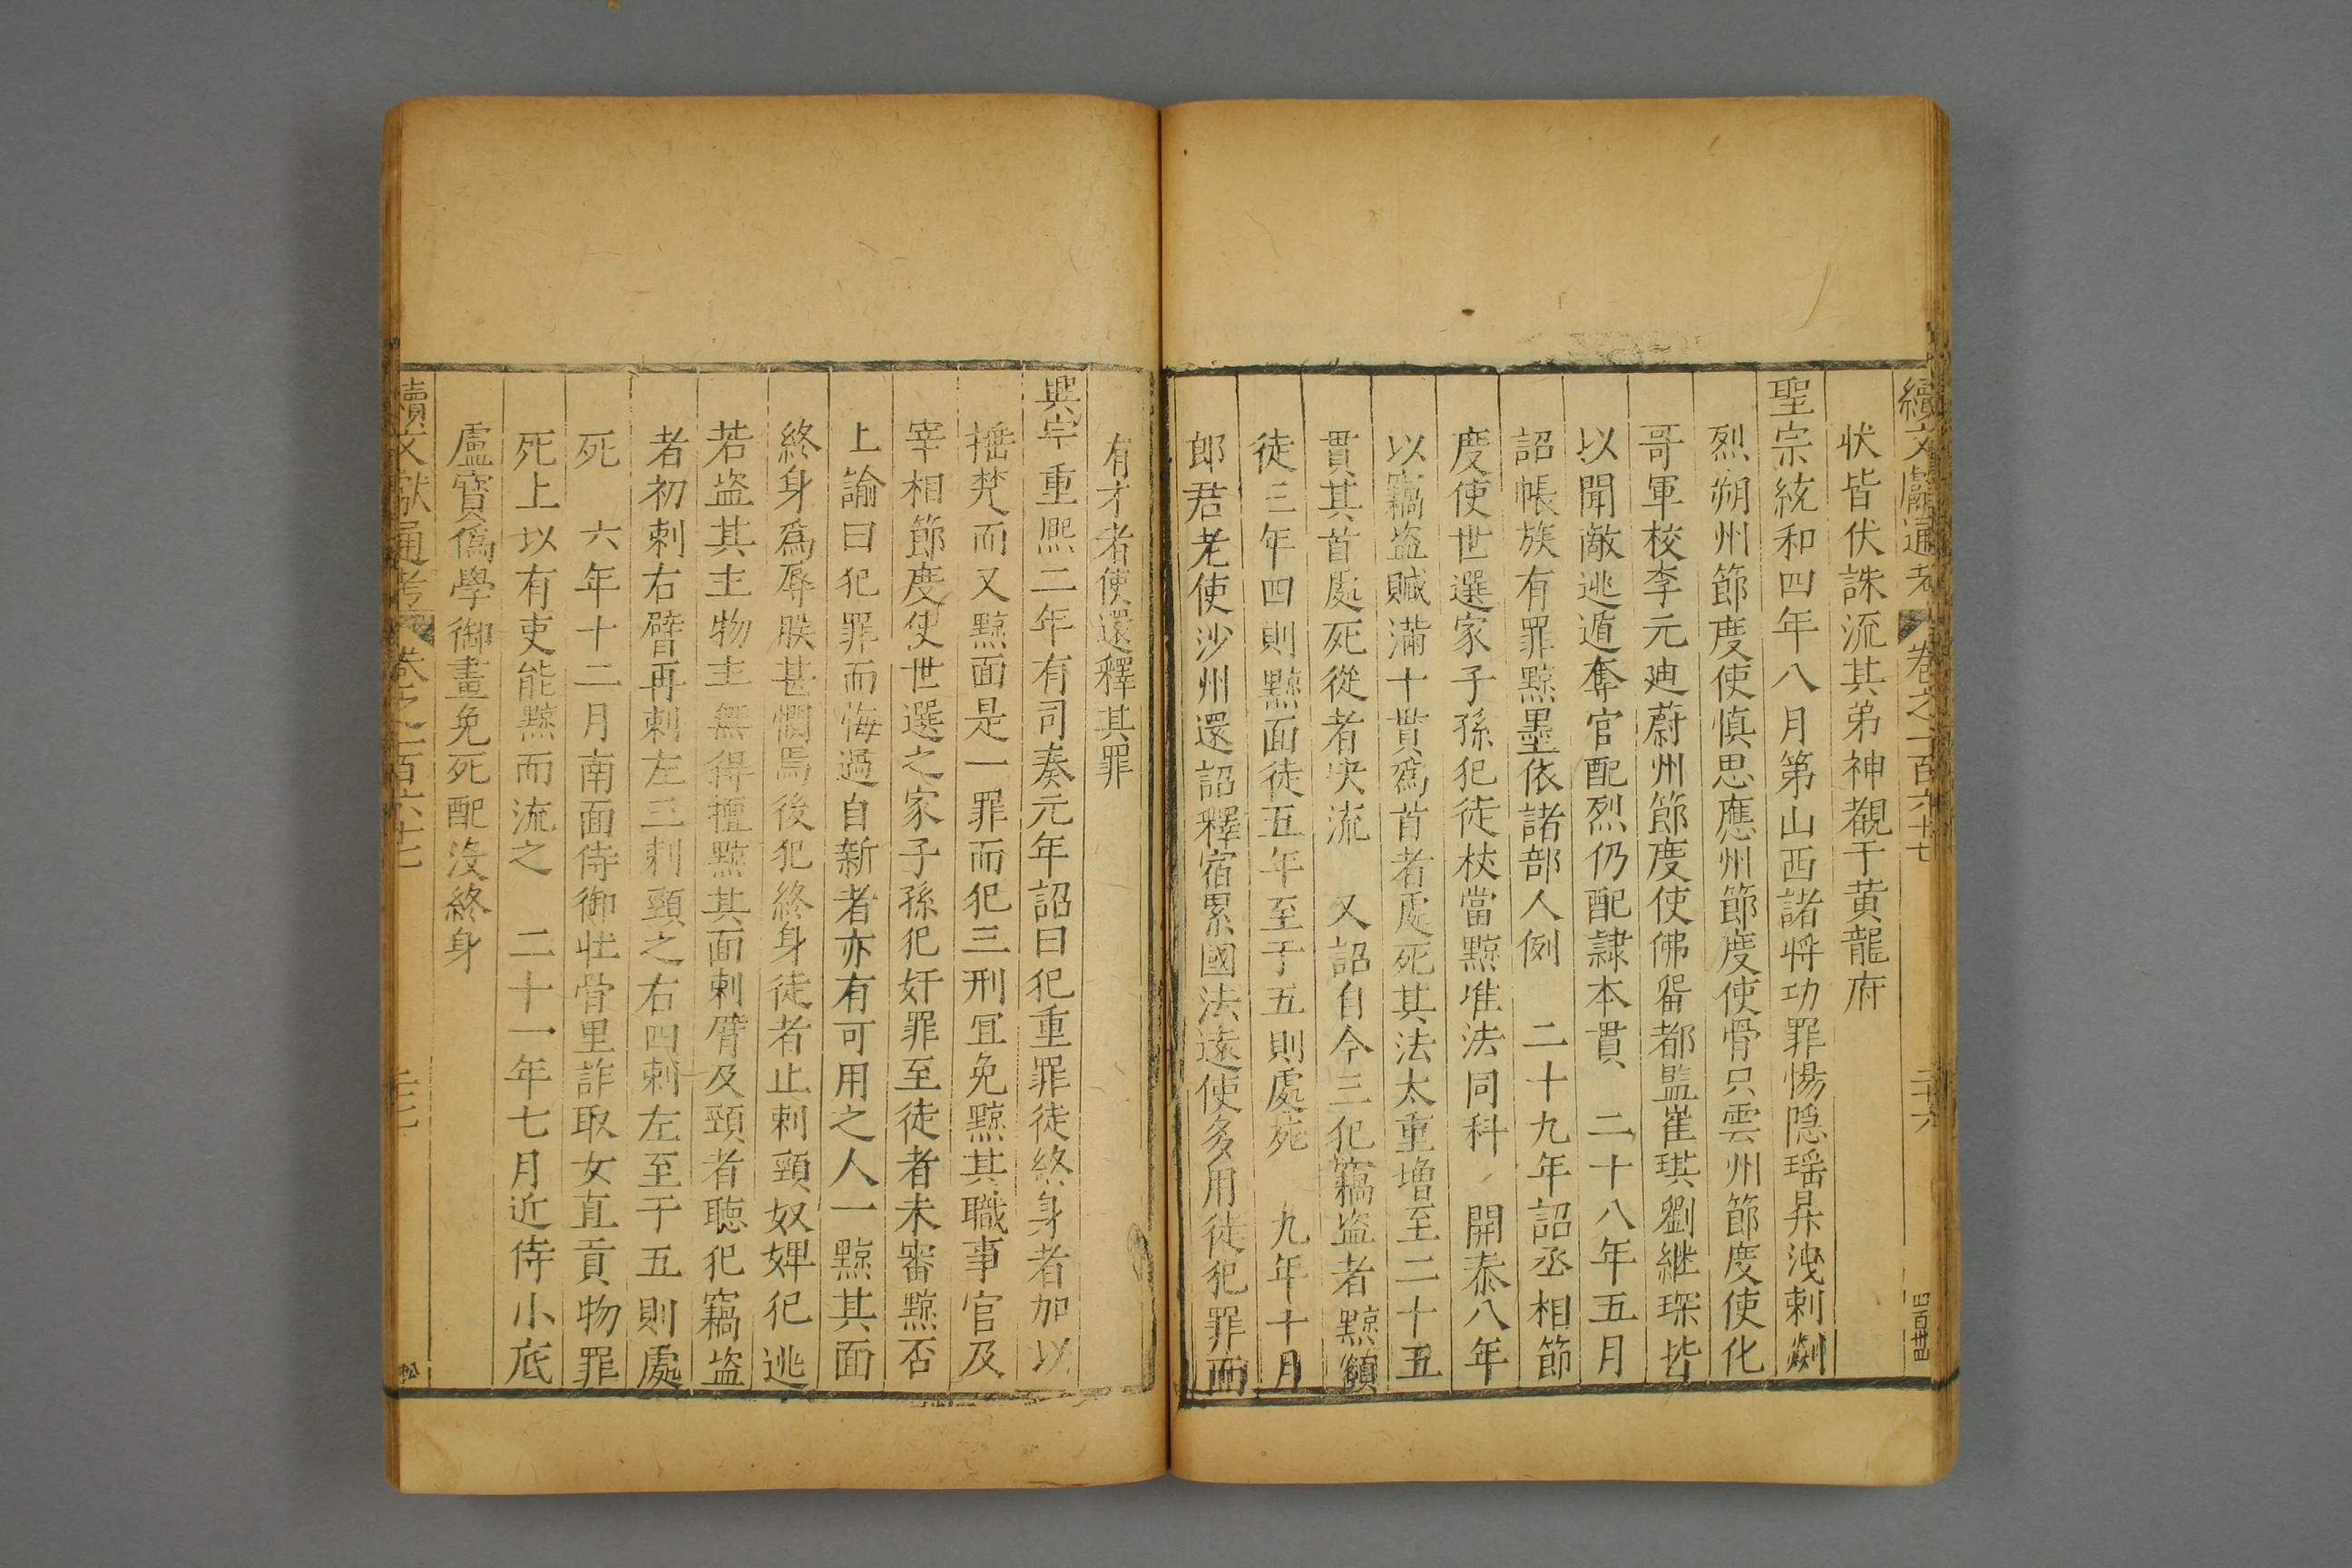 續文獻通考 卷之一百六十七 二十六 四百卅四
状皆伏誅流其弟神觀于黄龍府
聖宗統和四年八月第山西諸將功罪惕隱瑶昇洩剌
烈朔州節度使慎思應州節度使骨只雲州節度使化
哥軍校李元迪蔚州節度使佛畱都監崔琪劉継琛皆
以聞敵逃遁奪官配烈仍配隷本貫 二十八年五月
詔帳族有罪黥墨依諸部人例 二十九年詔丞相節
度使世選家子孫犯徒杖當黥准法同科 開泰八年
以竊盗贓滿十貫爲首者處死其法太重増至二十五
貫其首處死從者决流 又詔自今三犯竊盗者黥額
徒三年四則黥面徒五年至于五則處死 九年十月
郎君老使沙州還詔釋宿累國法遠使多用徒犯罪而
有才者使還釋其罪
興宗重熙二年有司奏元年詔曰犯重罪徒終身者加以
搖焚而又黥面是一罪而犯三刑冝免黥其職事官及
宰相節度使世選之家子孫犯奸罪至徒者未審黥否
上諭曰犯罪而悔過自新者亦有可用之人一黥其面
終身爲辱朕甚憫焉後犯終身徒者止刺頸奴婢犯逃
若盗其主物主無得擅黥其面刺臂及頸者聴犯竊盗
者初刺右臂再刺左三刺頸之右四刺左至于五則處
死 六年十二月南面侍御壮骨里詐取女直貢物罪
死上以有吏能黥而流之 二十一年七月近侍小底
盧寳僞學御畫免死配沒終身
續文獻通考 卷之一百六十七 二十七 松